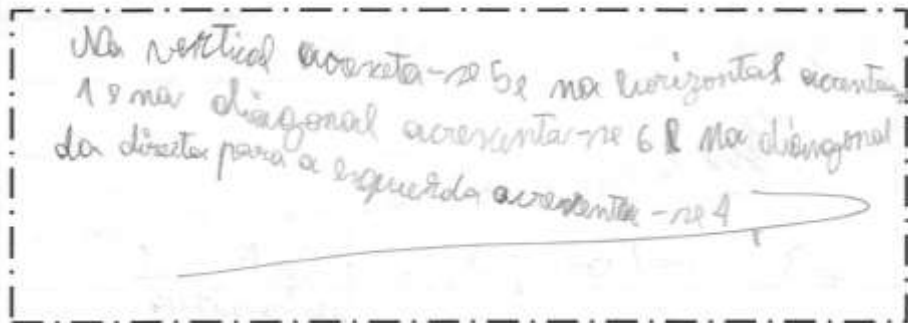 Na vertical acresceta-se 5 e na horizontal acrenta-se
1 e na diagonal acrescenta-se 6 e na diangonal
da direita para a esquerda acrescenta-se 4